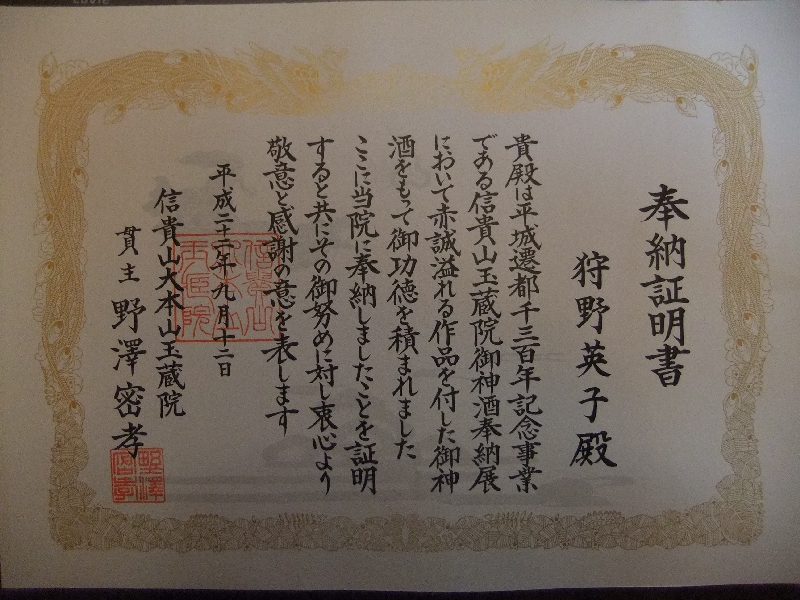 奉納証明書
狩野英子殿
貴殿は平城遷都千三百年記念事業
である信貴山玉蔵院御神酒奉納展
において赤誠溢れる作品を付した御神
酒をもって御功徳を積まれました
ここに当院に奉納しましたことを証明
すると共にその御努めに対し衷心より
敬意と感謝の意を表します
平成二十二年九月十二日
信貴山大本山玉蔵院
貫主 野澤密孝
野澤密孝